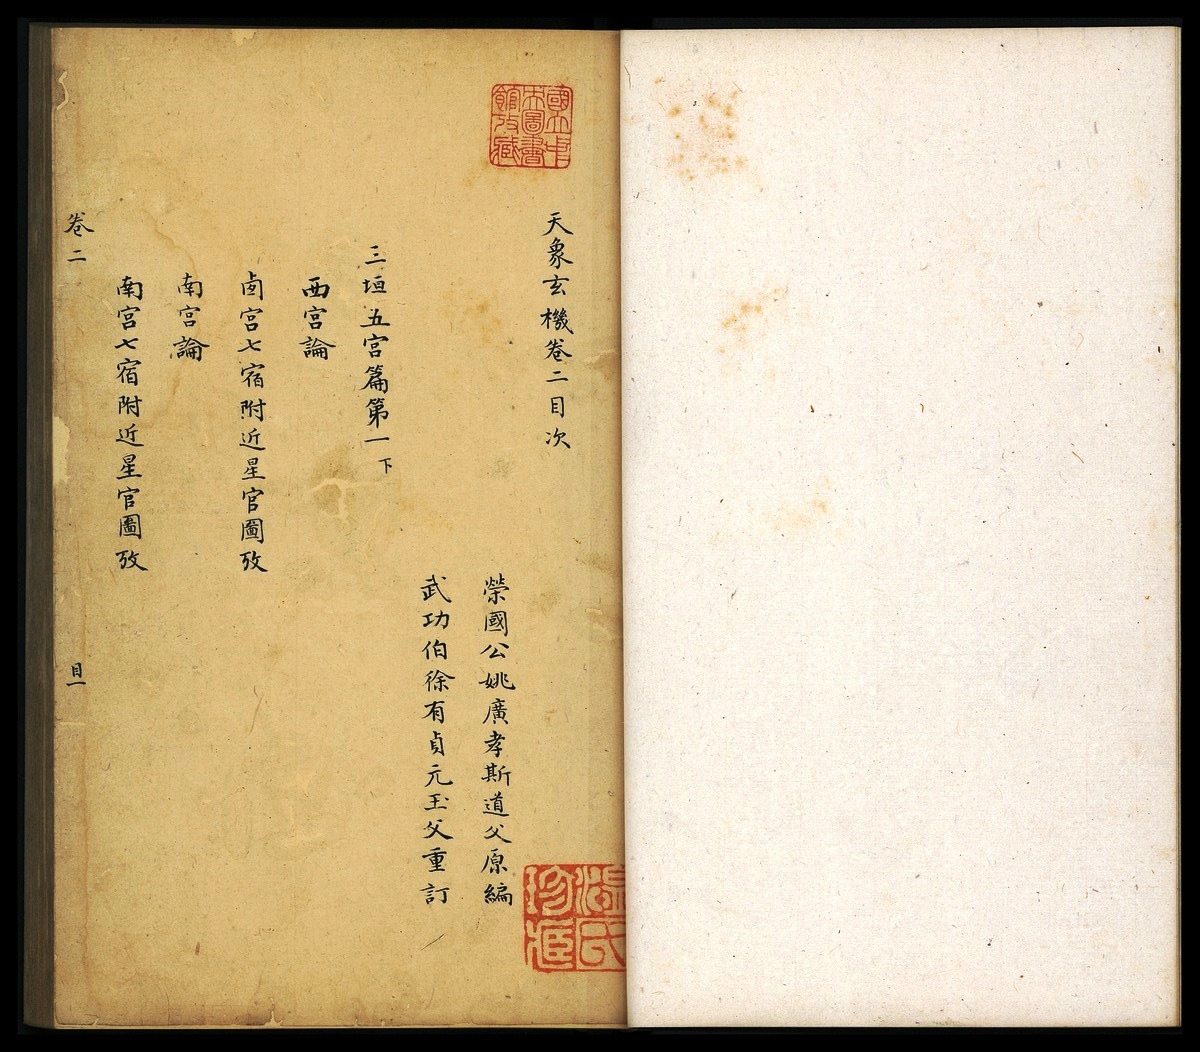 天象玄機卷二目次
榮國公姚廣孝斯道父原編
武功伯徐有貞元玉父重訂
三垣五宮篇第一下
西宮論
卥宮七宿附近星官圖攷
南宮論
南宮七宿附近星官圖攷
卷二
目一
國立中
央圖書
館攷藏
溫氏
珍臧